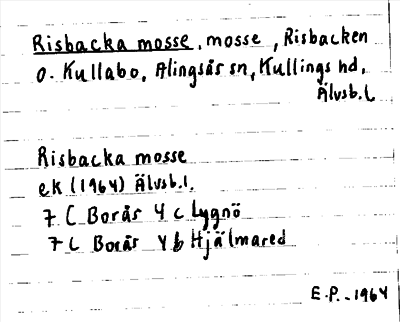 Risbacka mosse, mosse, Risbacken
o. Kullabo, Alingsås sn, Kullings hd,
Älvsb.l.
Risbacka mosse
ek (1964) Älvsb.l.
7 C Borås 4 c Lygnö
7 C Borås 4 b Hjälmared
E.P. - 1964